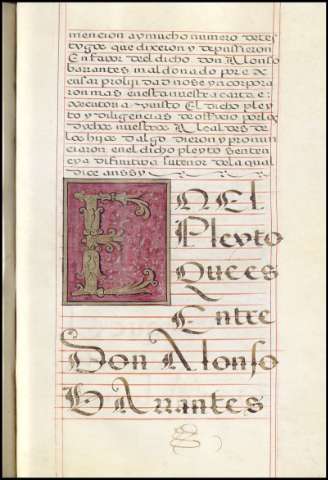 mencion ay mucho numero de tes
tygos que dixeron y depussieron
En favor del dicho don Alonso
barrantes maldonado por e x
cusar prolijidad no se yncorpora
ron mas en esta nuestra carta e
xecutoria y visto El dicho pley
to y diligencias de officio por los
dychos nuestros Alcaldes de
los hijos d algo dieron y pronun
ciaron en el dicho pleyto senten
cya difinitiva su tenor de la qual
dice anssy
EN El
Pleyto
Que es
Entre
Don Alonso
bArrantes